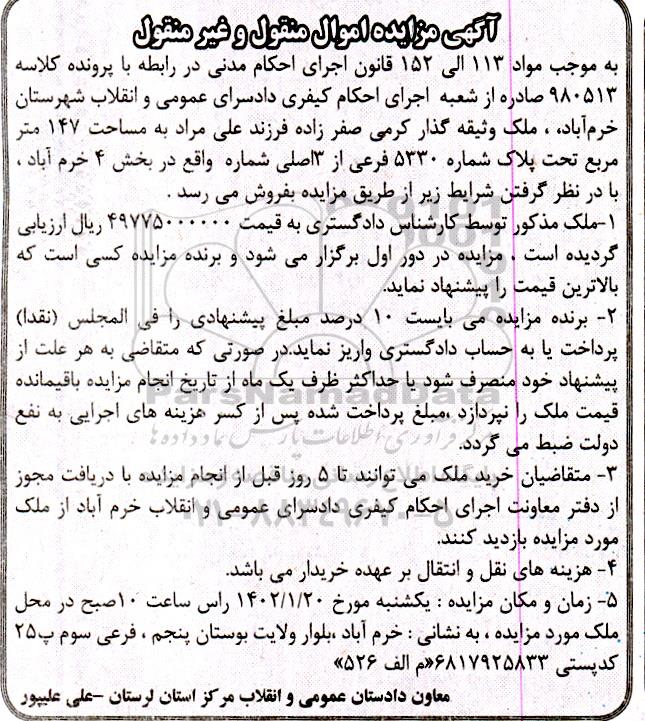 آگهی مزایده اموال منقول و غیر منقول
به موجب مواد ۱۱۳ الی ۱۵۲ قانون اجرای احکام مدنی در رابطه با پرونده کلاسه
۹۸۰۵۱۳ صادره از شعبه اجرای احکام کیفری دادسرای عمومی و انقلاب شهرستان
خرم‌آباد، ، ملک وثیقه گذار کرمی صفر زاده فرزند علی مراد به مساحت ۱۴۷ متر
مربع تحت پلاک شماره ۵۳۳۰ فرعی از ۳اصلی شماره واقع در بخش ۴ خرم آباد ،
با در نظر گرفتن شرایط زیر از طریق مزایده بفروش می رسد .
۱-ملک مذکور توسط کارشناس دادگستری به قیمت ۴۹۷۷۵۰۰۰۰۰۰ ریال ارزیابی
گردیده است ، مزایده در دور اول برگزار می شود و برنده مزایده کسی است که
بالاترین قیمت را پیشنهاد نماید.
۲- برنده مزایده می بایست ۱۰ درصد مبلغ پیشنهادی را فی المجلس (نقدا)
پرداخت یا به حساب دادگستری واریز نماید.در صورتی که متقاضی به هر علت از
پیشنهاد خود منصرف شود یا حداکثر ظرف یک ماه از تاریخ انجام مزایده باقیمانده
قیمت ملک را نپردازد ،مبلغ پرداخت شده پس از کسر هزینه های اجرایی به نفع
دولت ضبط می گردد.
۳- متقاضیان خرید ملک می توانند تا ۵ روز قبل از انجام مزایده با دریافت مجوز
از دفتر معاونت اجرای احکام کیفری دادسرای عمومی و انقلاب خرم آباد از ملک
مورد مزایده بازدید کنند.
۴- هزینه های نقل و انتقال بر عهده خریدار می باشد.
۵- زمان و مکان مزایده : یکشنبه مورخ ۱۴۰۲/۱/۲۰ راس ساعت ۱۰صبح در محل
ملک مورد مزایده ، به نشانی : خرم آباد ،بلوار ولایت بوستان پنجم ، فرعی سوم پ۲۵
کدپستی ۶۸۱۷۹۲۵۸۳۳«م الف ۵۲۶»
معاون دادستان عمومی و انقلاب مرکز استان لرستان -علی علیپور
ParsNamadData
مرکز فرآوری اطلاعات پارس نماد داده ها
۰۲۱-۸۸۳۴۹۶۷۰-۵